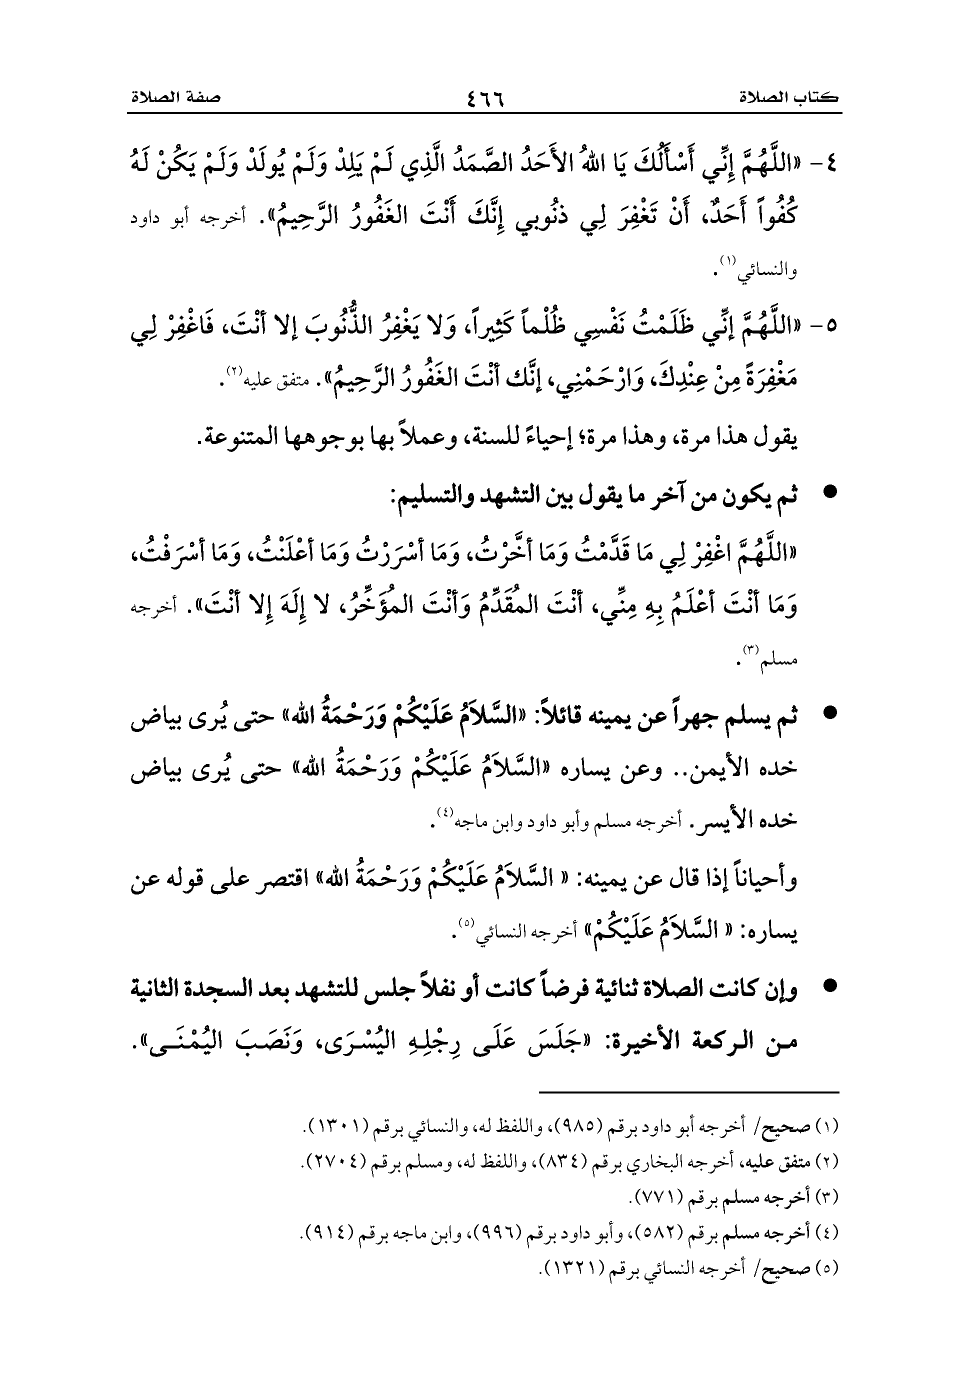 كتاب الصلاة ٤٦٦ صفة الصلاة
٤- «اللَّهُمَّ إِنِّي أَسْأَلُكَ يَا اللهُ الأَحَدُ الصَّمَدُ الَّذِي لَمْ يَلِدْ وَلَمْ يُولَدْ وَلَمْ يَكُنْ لَهُ
كُفُواً أَحَدٌ، أَنْ تَغْفِرَ لِي ذنُوبي إِنَّكَ أَنْتَ الغَفُورُ الرَّحِيمُ». أخرجه أبو داود
والنسائي(١).
٥- «اللَّهُمَّ إنِّي ظَلَمْتُ نَفْسِي ظُلْماً كَثِيراً، وَلا يَغْفِرُ الذُّنُوبَ إلا أنْتَ، فَاغْفِرْ لِي
مَغْفِرَةً مِنْ عِنْدِكَ، وَارْحَمْنِي، إنَّك أنْتَ الغَفُورُ الرَّحِيمُ». متفق عليه(٢).
يقول هذا مرة، وهذا مرة؛ إحياءً للسنة، وعملاً بها بوجوهها المتنوعة.
● ثم يكون من آخر ما يقول بين التشهد والتسليم:
«اللَّهُمَّ اغْفِرْ لِي مَا قَدَّمْتُ وَمَا أخَّرْتُ، وَمَا أسْرَرْتُ وَمَا أعْلَنْتُ، وَمَا أسْرَفْتُ،
وَمَا أنْتَ أعْلَمُ بِهِ مِنِّي، أنْتَ المُقَدِّمُ وَأنْتَ المُؤَخِّرُ، لا إِلَهَ إِلا أنْتَ». أخرجه
مسلم(٣).
● ثم يسلم جهراً عن يمينه قائلاً: «السَّلاَمُ عَلَيْكُمْ وَرَحْمَةُ الله» حتى يُرى بياض
خده الأيمن.. وعن يساره «السَّلاَمُ عَلَيْكُمْ وَرَحْمَةُ الله» حتى يُرى بياض
خده الأيسر. أخرجه مسلم وأبو داود وابن ماجه(٤).
وأحياناً إذا قال عن يمينه: « السَّلاَمُ عَلَيْكُمْ وَرَحْمَةُ الله» اقتصر على قوله عن
يساره: « السَّلاَمُ عَلَيْكُمْ» أخرجه النسائي(٥).
● وإن كانت الصلاة ثنائية فرضاً كانت أو نفلاً جلس للتشهد بعد السجدة الثانية
من الركعة الأخيرة: «جَلَسَ عَلَى رِجْلِهِ اليُسْرَى، وَنَصَبَ اليُمْنَى».
(١) صحيح/ أخرجه أبو داود برقم (٩٨٥)، واللفظ له، والنسائي برقم (١٣٠١).
(٢) متفق عليه، أخرجه البخاري برقم (٨٣٤)، واللفظ له، ومسلم برقم (٢٧٠٤).
(٣) أخرجه مسلم برقم (٧٧١).
(٤) أخرجه مسلم برقم (٥٨٢)، وأبو داود برقم (٩٩٦)، وابن ماجه برقم (٩١٤).
(٥) صحيح/ أخرجه النسائي برقم (١٣٢١).